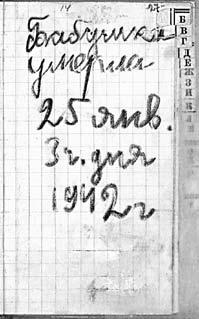 Бабушка
умерла
25 янв.
3 ч. дня
1942 г
Б
В
Г
Д
Е
Ж
З
И
К